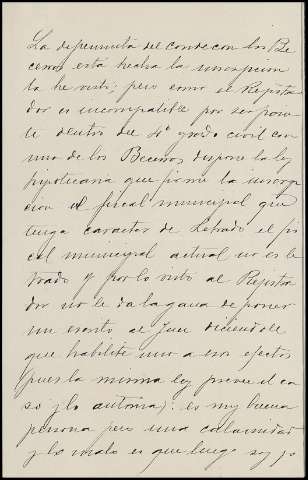 La dependencia del conde con los Be
cerros está hecha la inscripcion
la he visto; pero como el Registra
dor es incompatible por ser parien
te dentro del 4º grado civil con
uno de los Becerros dispone la ley
hipotecaria que firme la inscrip
cion el fiscal municipal que
tenga caracter de Letrado el fis
cal municipal actual no es le
trado y por lo visto al Registra
dor no le da la gana de poner
un escrito al Juez diciendole
que habilite uno a esos efectos
pues la misma ley prevee el ca
so y lo autoriza): es muy buena
persona pero una calamidad
y lo malo es que luego soy yo